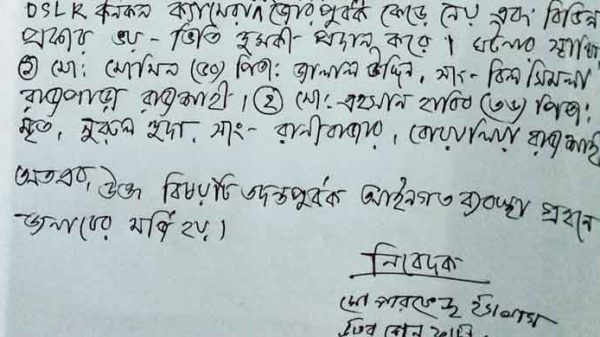 DSLR কনকল ক্যামেরাটি জোর পূর্বক কেড়ে নেয় এবং বিভিন্ন
প্রকার ভয়-ভিতি হুমকী প্রদান করে। ঘটনার স্বাক্ষী
① মোঃ মোমিন (৫০) পিতাঃ জালাল উদ্দিন, সাং- বিল সিমলা
রায়পাড়া রাজশাহী। ② মোঃ এহসান হাবিব (৩৬) পিতাঃ
মৃত, নুরুল হুদা, সাং- রানীবাজার, বোয়ালিয়া রাজশাহী
অতএব, উক্ত বিষয়টি তদন্তপূর্বক আইনগত ব্যবস্থা গ্রহনে
জনাবের মর্জি হয়।
নিবেদক
মো পারভেজ ইসলাম